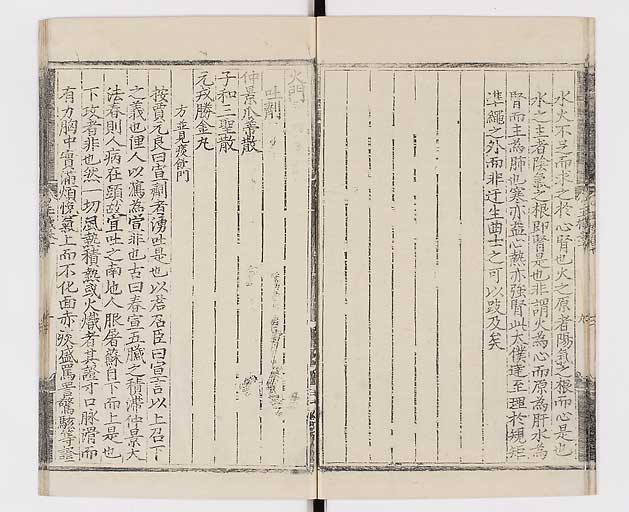 水火不足而求之於心腎也火之原者陽氣之根而心是也
水之主者陰氣之根即腎是也非謂火為心而原為肝水為
腎而主為肺也寒亦益心熱亦強腎此太僕達至理於規矩
準繩之外而非迂生曲士之可以跂及矣
火門
吐劑
仲景瓜蒂散
子和三聖散
元戎勝金丸
方並見痰飲門
按賈元良曰宣劑者湧吐是也以君召臣曰宣言以上召下
之義也俚人以瀉為宣非也古曰春宣五臟之積滯仲景大
法春則人病在頭故宜吐之南地人服屠蘇自下而上是也
下攻者非也然一切風熱積熱或火熾者其證才口脉滑而
有力胸中實滿煩懊氣上而不化面亦痰盛罵詈驚駭等證